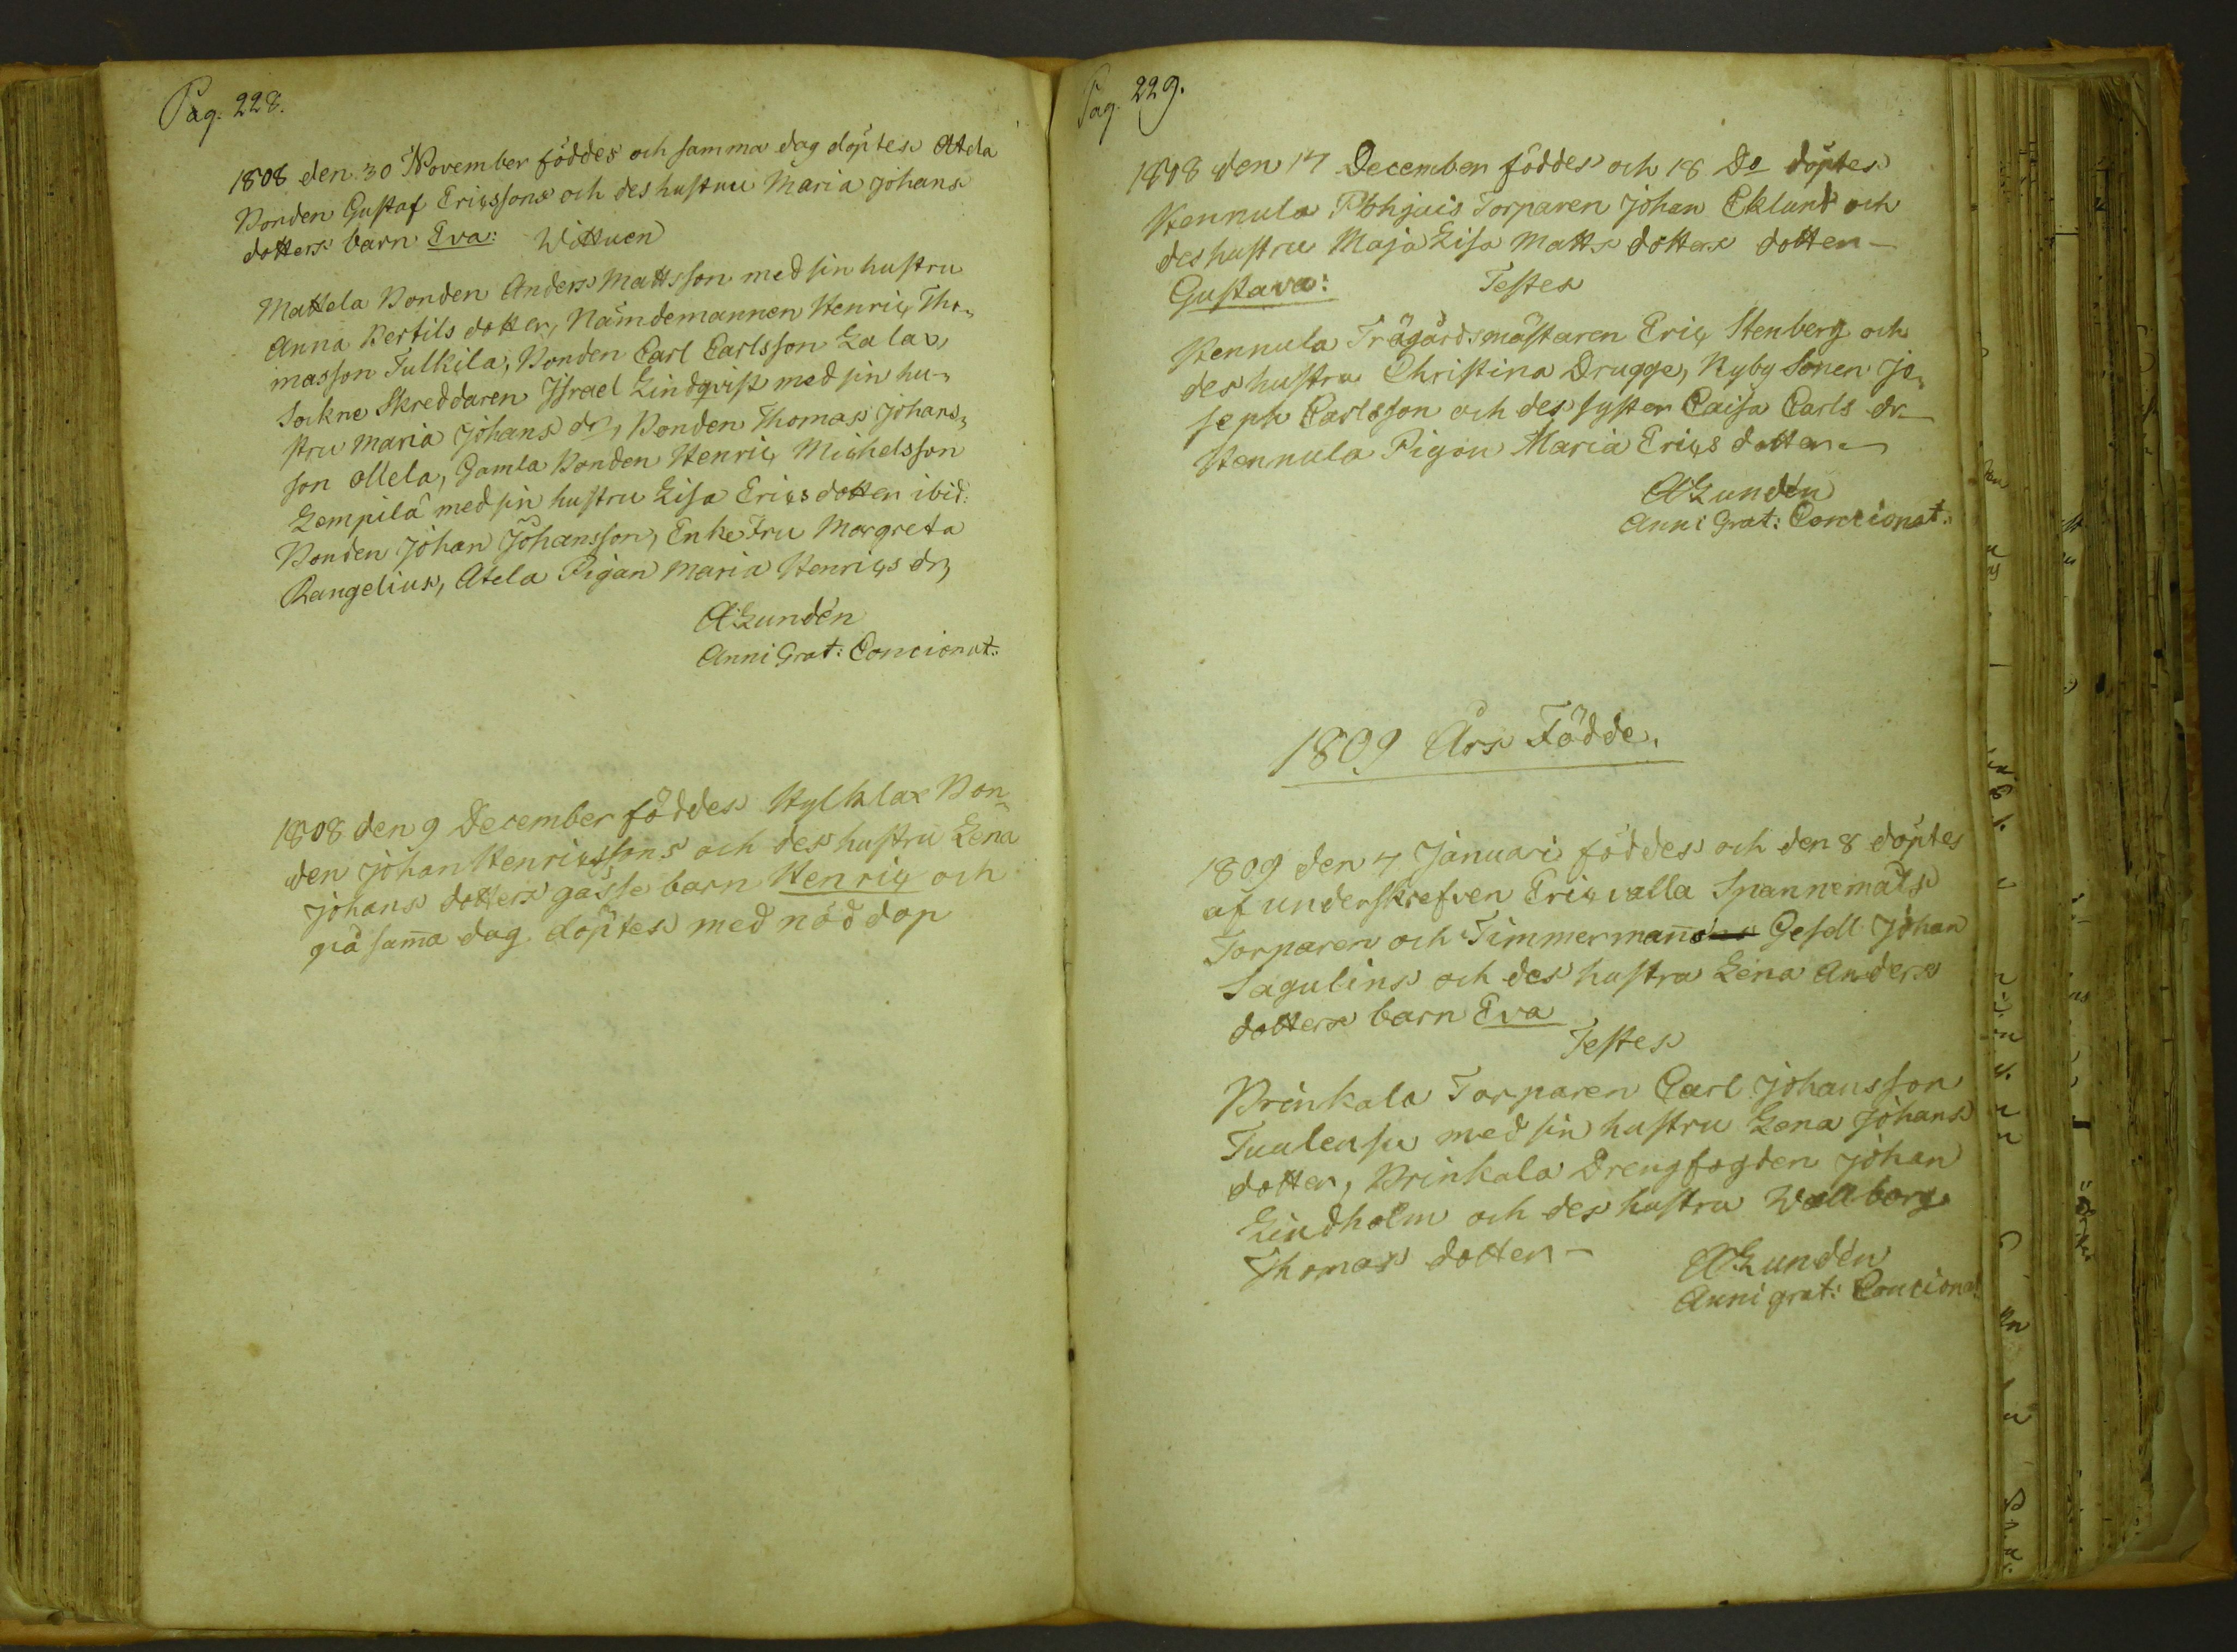 Pag. 228.
1808 den 30 November föddes och samma dag döptes Atela
Bonden Gustaf Ericssons och des hustru Maria Johans
dotters barn Eva: Wittnen
Mattela Bonden Anders Mattsson med sin hustru
Anna Bertils dotter, Nämdemannen Henric Tho„
masson Tulkila, Bonden Carl Carlsson Lalax,
Sockne Skreddaren Israel Lindqvist med sin hu„
stru Maria Johans dr, Bonden Thomas Johans„
son Mela, Gamla Bonden Henric Michelsson
Lempilä med sin hustru Lisa Erics dotter ibid:
Bonden Johan Johansson, Enke Fru Margreta
Rangelius, Atela Pigan Maria Henrics dr,
A Lundén
Anni Grat: Concionat:
1808 den 9 December föddes Hylklax Bon„
den Johan Henricssons och des hustru Lena
Johans dotters gåsse barn Henric och
på sam̄a dag döptes med nöd dop
Pag. 229.
1808 den 17 December föddes och 18 Do döptes
Kennula Pohjais Torparen Johan Eklund och
des hustru Maja Lisa Matts dotters dotter –
Gustava: Testes
Kennula Trägårdsmästaren Eric Stenberg och
des hustru Christina Drugge, Nyby Sonen Jo„
seph Carlsson och des syster Caisa Carls dr
Kennula Pigan Maria Erics dotter –
A Lundén
Anni Grat: Concionat:
1809 Års Födde.
1809 den 7 Januari föddes och den 8 döptes
af underskrefven Ericvalla Spannemäts
Torparen och Timmerman̄s Gesell Johan
Sagulins och des hustru Lena Anders
dotters barn Eva
Testes
Brinkala Torparen Carl Johansson
Tuulensu med sin hustru Lena Johans
dotter, Brinkala Drengfogden Johan
Lindholm och des hustru Wallborg
Thomas dotter –
A Lundén
Anni grat: Concionat